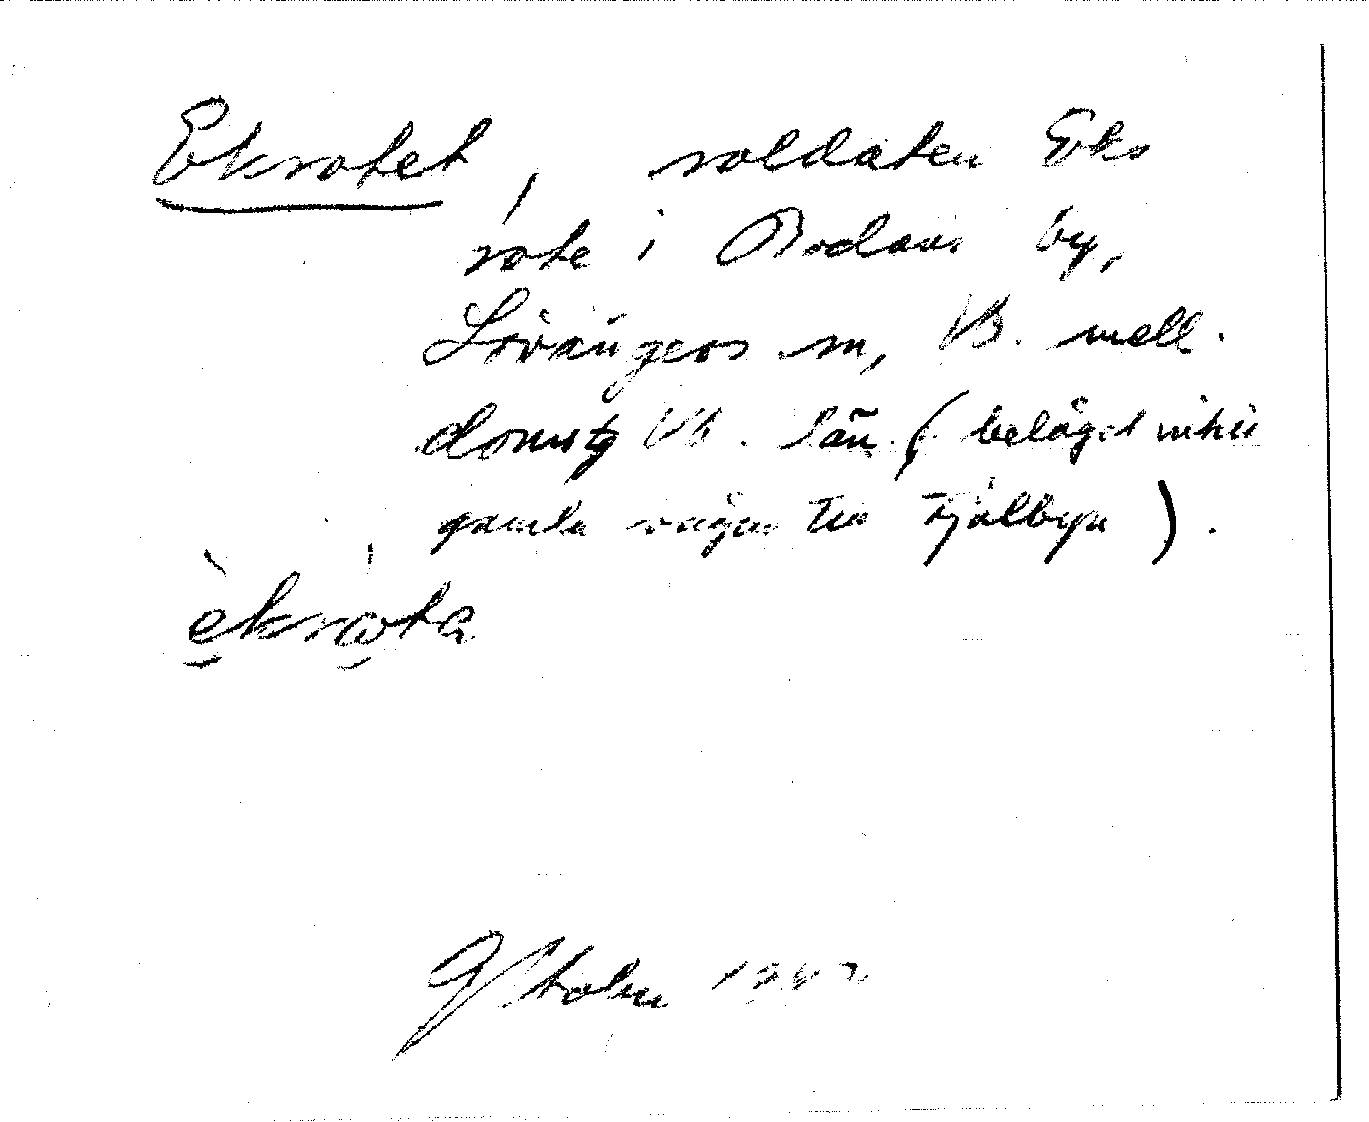 Ekrotet, soldaten Eks
rote i Bodans by,
Lövångers sn, Vb. mell.
domstg Vb. län (beläget invid
gamla vägen till Fjälbyn).
èkrota
G Holm 1942